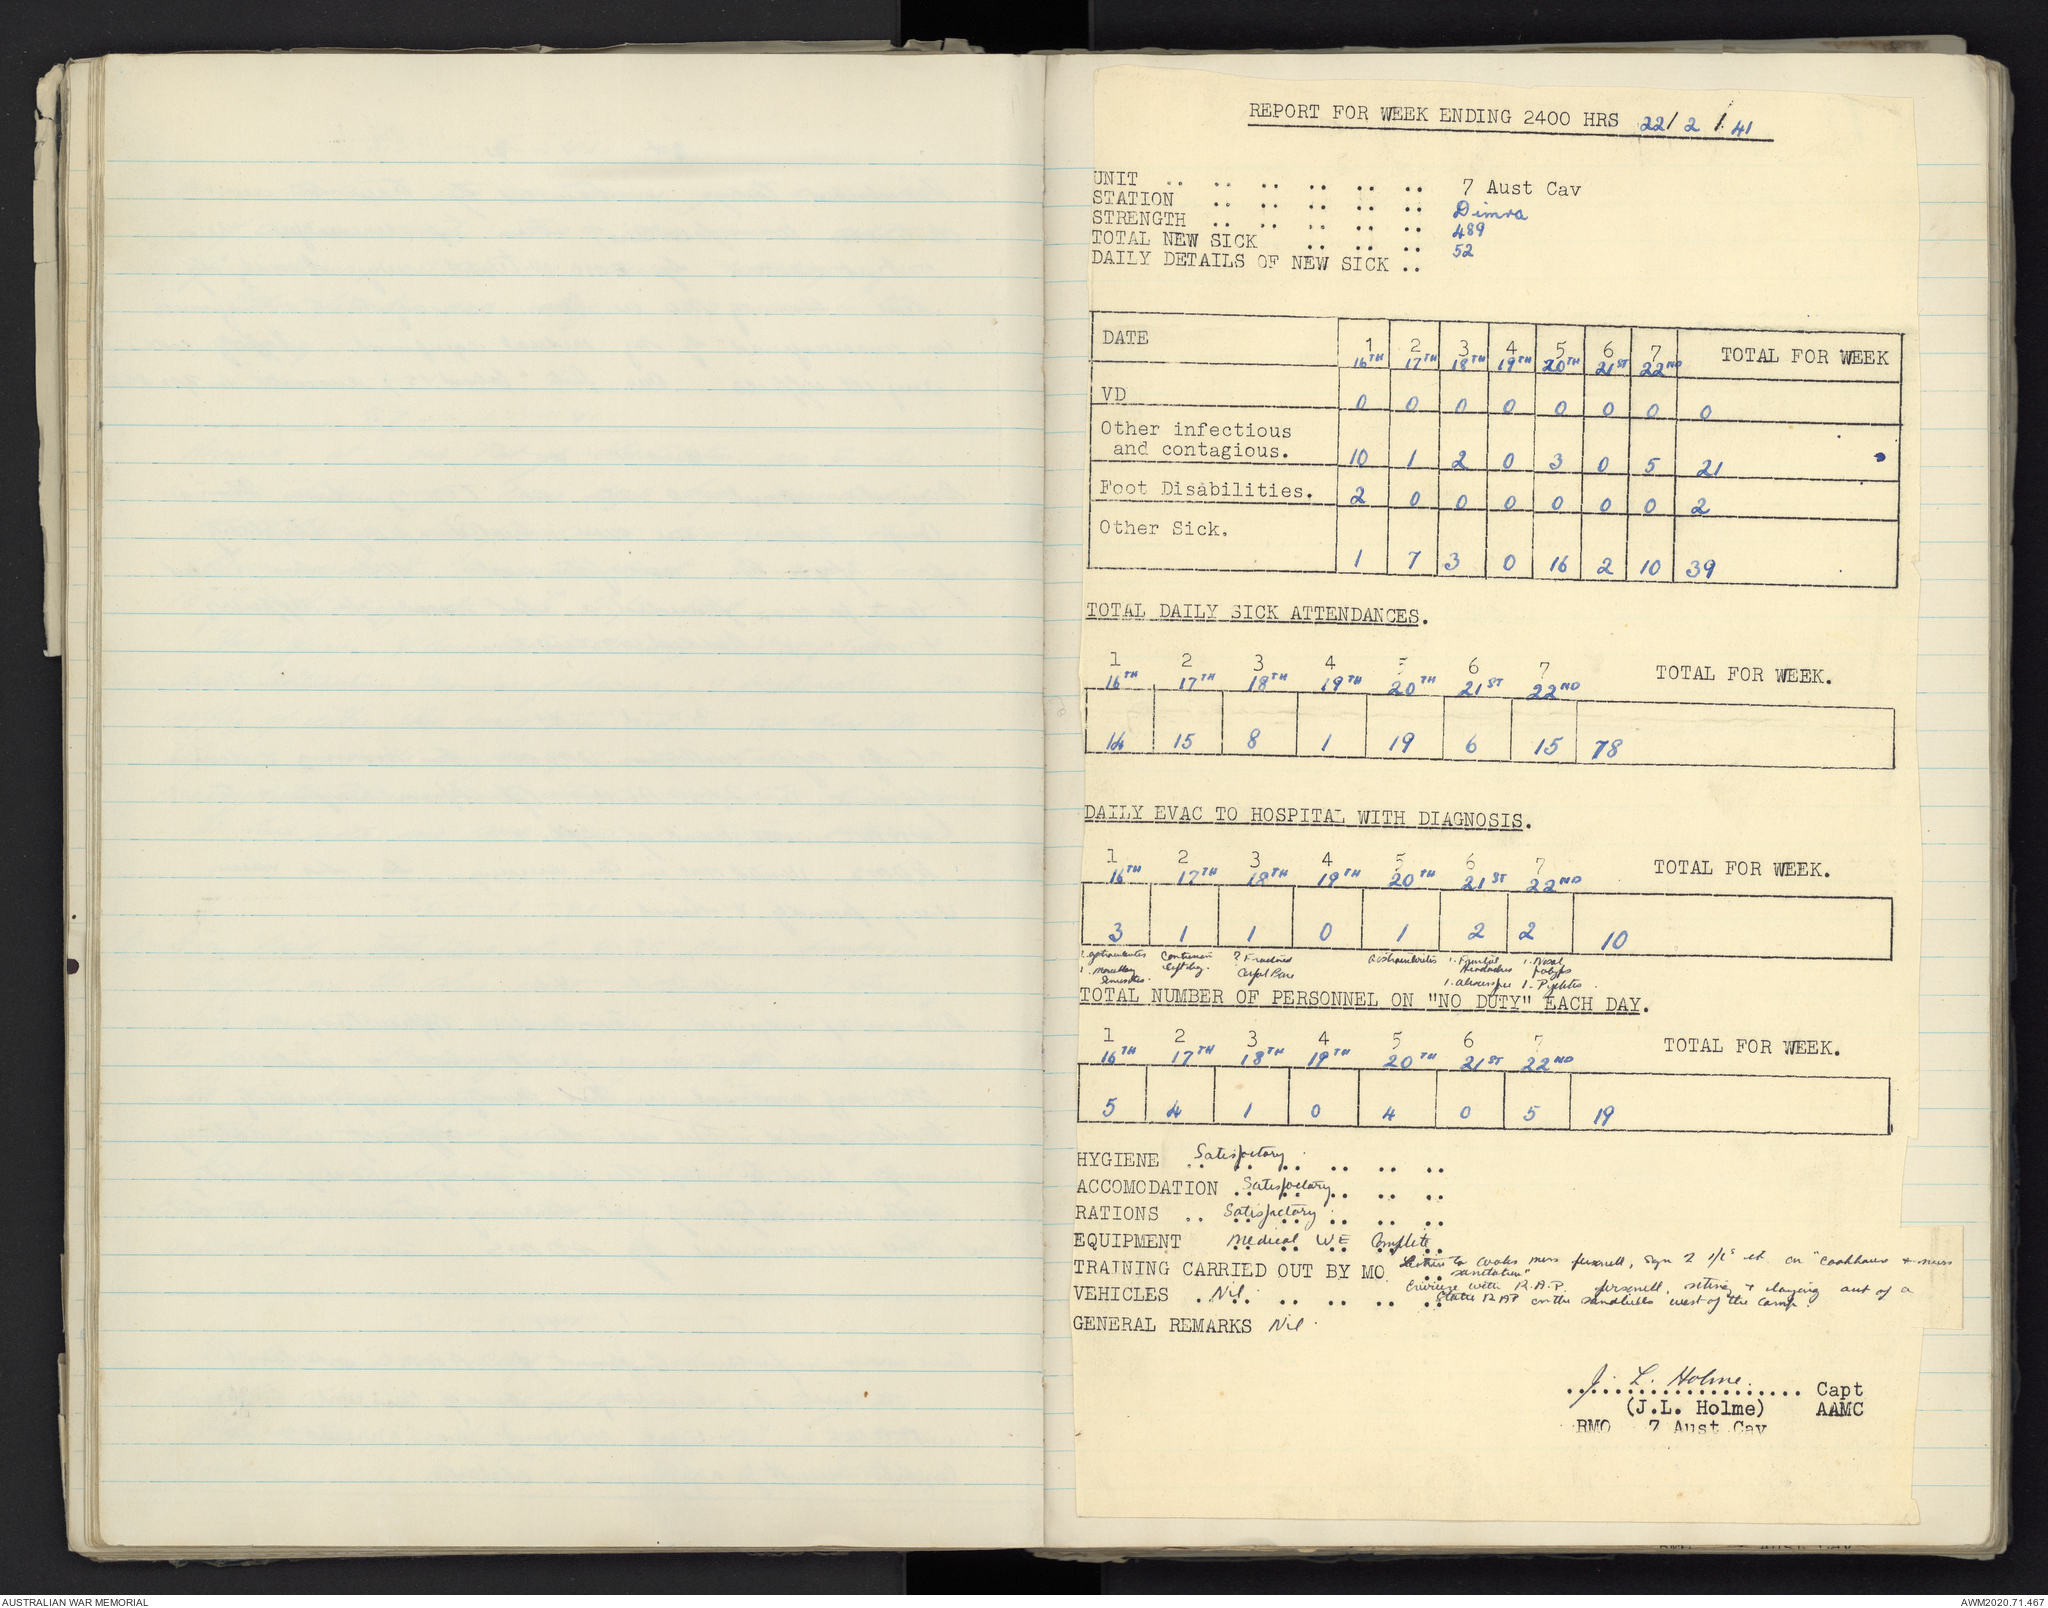 REPORT FOR WEEK ENDING 2400 HRS 22/ 2 /. 41
UNIT .. .. .. .. .. .. 7 Aust Cav
STATION .. .. .. .. .. Dimra
STRENGTH .. .. .. .. .. 489
TOTAL NEW SICK .. .. .. 52
DAILY DETAILS OF NEW SICK ..
DATE 1 2 3 4 5 6 7 TOTAL FOR WEEK
16TH 17TH 18TH 19TH 20TH 21ST 22ND
VD 0 0 0 0 0 0 0 0
Other infectious
and contagious. 10 1 2 0 3 0 5 21
Foot Disabilities. 2 0 0 0 0 0 0 2
Other Sick.
1 7 3 0 16 2 10 39
TOTAL DAILY SICK ATTENDANCES.
1 2 3 4 5 6 7 TOTAL FOR WEEK.
16TH 17TH 18TH 19TH 20TH 21ST 22ND
14 15 8 1 19 6 15 78
DAILY EVAC TO HOSPITAL WITH DIAGNOSIS.
1 2 3 4 5 6 7 TOTAL FOR WEEK.
16TH 17TH 18TH 19TH 20TH 21ST 22ND
3 1 1 0 1 2 2 10
Contusion ? Fractured 1. Frontal 1. Nasal
left leg. Carpal Bone Headaches polyps
TOTAL NUMBER OF PERSONNEL ON "NO DUTY" EACH DAY.
1 2 3 4 5 6 7 TOTAL FOR WEEK.
16TH 17TH 18TH 19TH 20TH 21ST 22ND
5 4 1 0 4 0 5 19
HYGIENE .. Satisfactory .. .. ..
ACCOMODATION .. Satisfactory .. .. ..
RATIONS .. Satisfactory .. .. ..
EQUIPMENT Medical WE Complete
TRAINING CARRIED OUT BY MO .. Lecture to Cooks mess personell, Sqn on "Cookhouse & mess
sanitation"
Exercise with R.A.P. personell, siting & laying out of a
VEHICLES . Nil .. .. .. .. .. Static RAP on the sandhills west of the Camp.
GENERAL REMARKS Nil.
J. L. Holme.
.................... Capt
(J.L. Holme) AAMC
RMO 7 Aust Cav
AUSTRALIAN WAR MEMORIAL
AWM2020.71.467